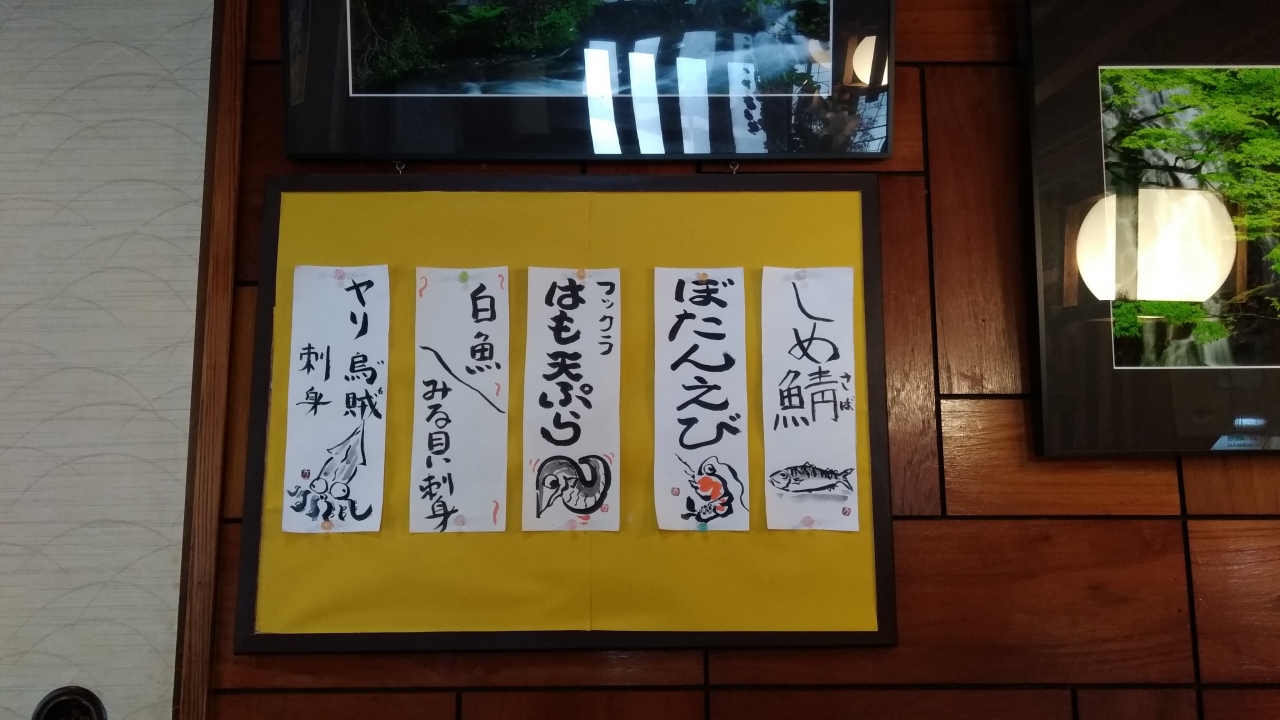 しめ鯖
さば
ぼたんえび
フックラ
はも天ぷら
白魚
みる貝刺身
ヤリ烏賊
刺身